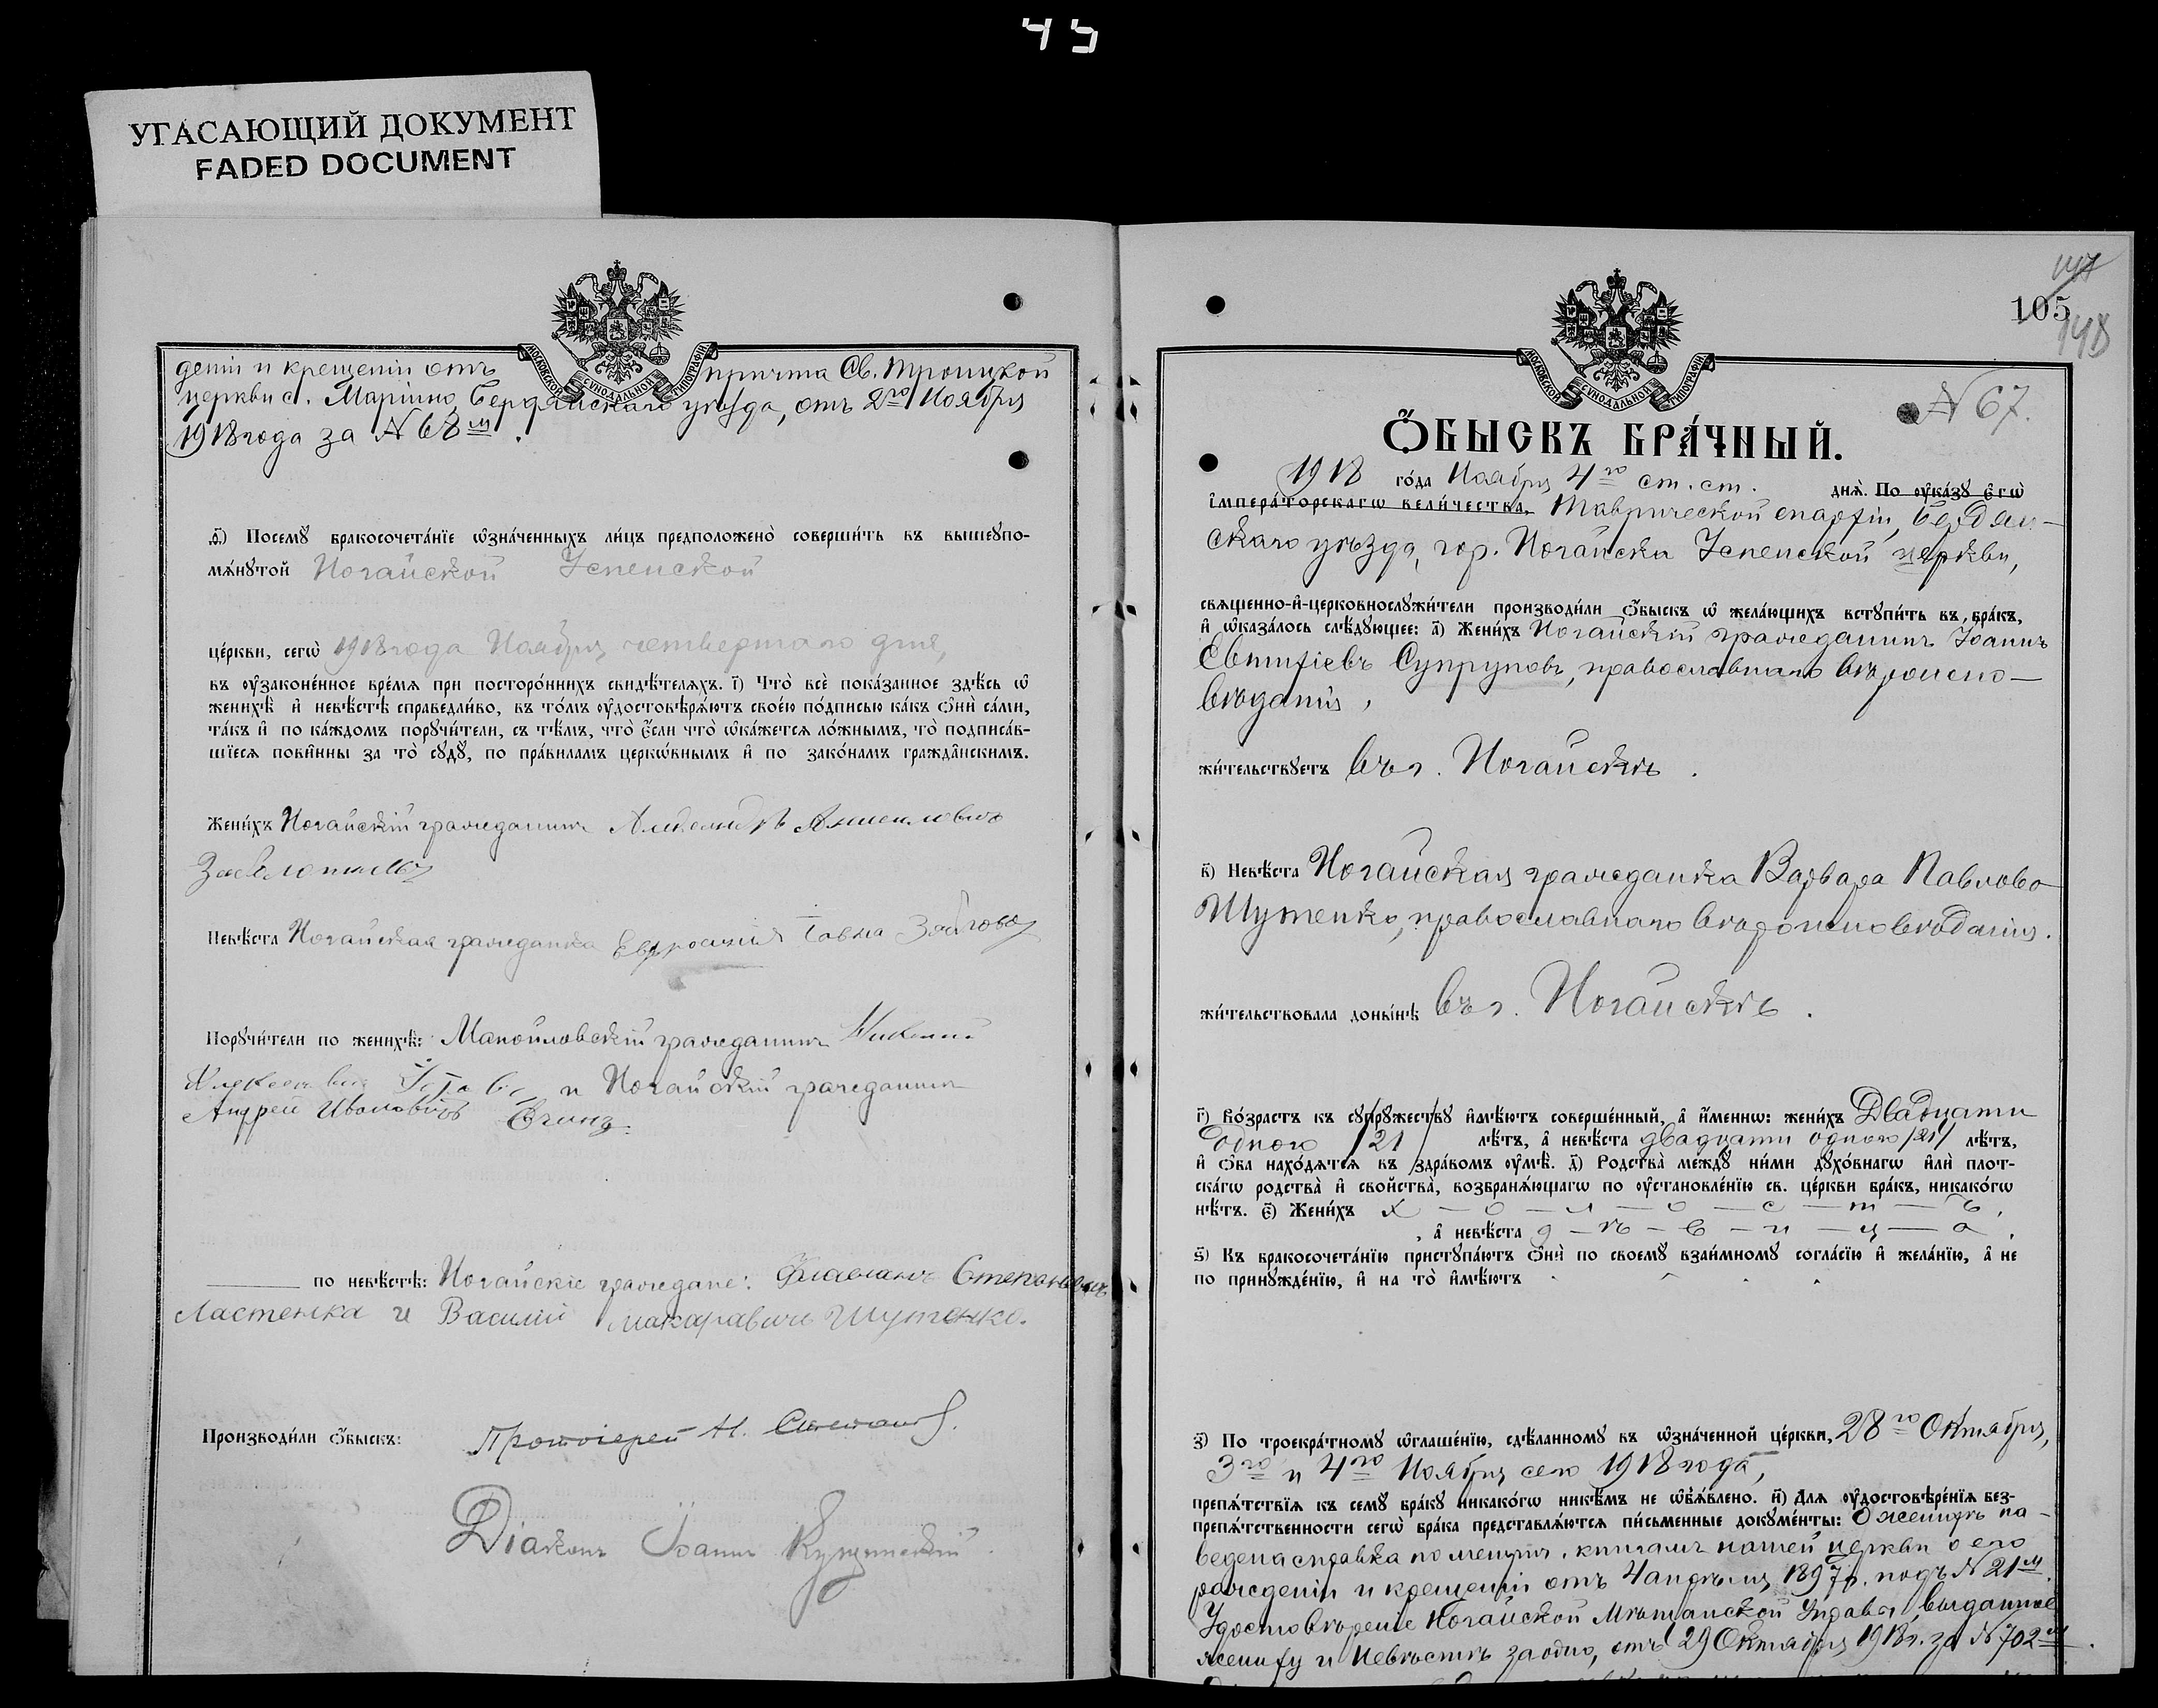 45
УГАСАЮЩИЙ ДОКУМЕНТ
FADED DOCUMENT
МОСКОВСКОЙ СѴНОДАЛЬНОЙ ТИПОГРАФІИ
деніи и крещеніи отъ причта Св. Троицкой
церкви с. Маріино, Бердянскаго уѣзда, отъ 2го Ноября
1918 года за № 68м.
д҃і) Посемꙋ̀ бракосочета́нїе ѡ҆зна́ченныхъ ли́цъ предположено̀ соверши́ть въ вышеꙋпо-
мѧ́нꙋтой Ногайской Успенской
це́ркви, сегѡ̀ 1918 года Ноября четвертаго дня,
въ ѹ҆зако́ненное вре́мѧ при посторо́ннихъ свидѣ́телѧхъ. і҃) Что̀ всѐ пока́занное здѣ́сь ѡ҆
женихѣ̀ и҆ невѣ́стѣ справедли́во, въ то́мъ ѹ҆достовѣрѧ́ютъ свое́ю по́дписью ка́къ ѻ҆нѝ са́ми,
та́къ и҆ по ка́ждомъ порꙋчи́тели, съ тѣ́мъ, что̀ є҆́сли что̀ ѡ҆ка́жетсѧ ло́жнымъ, то̀ подписа́в-
шїесѧ пови́нны за то̀ сꙋдꙋ̀, по пра́виламъ церкѡ́внымъ и҆ по зако́намъ гражда̑нскимъ.
Жени́хъ Ногайскій гражданинъ
Невѣ́ста Ногайская гражданка Евфросинія
Порꙋчи́тели по женихѣ̀: Манойловскій гражданинъ
и Ногайскій гражданинъ
Андрей Ивановичъ
по невѣ́стѣ: Ногайскіе граждане: Степановичъ
Ластенка и Василий Макаравичъ Шутенко.
Производи́ли ѻ҆́быскъ: Протоіерей Н.
Діаконъ Іоаннъ
147
105
148
МОСКОВСКОЙ СѴНОДАЛЬНОЙ ТИПОГРАФІИ
№ 67.
Ѻ҆́БЫСКЪ БРА́ЧНЫЙ.
1918 го́да Ноября 4го ст. ст. днѧ̀. По ѹ҆ка́зꙋ є҆гѡ̀
і҆мпера́торскагѡ вели́чества, Таврической епархіи, Бердян-
скаго уѣзда, гор. Ногайска Успенской церкви,
свѧще́нно-и҆-церковнослꙋжи́тели производи́ли ѻ҆́быскъ ѡ҆ жела́ющихъ встꙋпи́ть въ бра́къ,
и҆ ѡ҆каза́лось слѣ́дꙋющее: а҃) Жени́хъ Ногайскій гражданинъ Іоаннъ
Евтифіевъ Супруновъ, православнаго вѣроиспо-
вѣданія,
жи́тельствꙋетъ въ г. Ногайскѣ.
в҃) Невѣ́ста Ногайская гражданка Варвара Павлова
Шутенко, православнаго вѣроисповѣданія.
жи́тельствовала доны́нѣ въ г. Ногайскѣ.
г҃) Во́зрастъ къ сꙋпрꙋ́жествꙋ и҆мѣ́ютъ соверше́нный, а҆ и҆́меннѡ: жени́хъ Двадцати
одного /21/ лѣ́тъ, а҆ невѣ́ста двадцати одного /21/ лѣ́тъ,
и҆ ѻ҆́ба нахо́дѧтсѧ въ здра́вомъ ѹ҆мѣ̀. д҃) Родства̀ междꙋ̀ ни́ми дꙋхо́внагѡ и҆лѝ плот-
ска́гѡ родства̀ и҆ свойства̀, возбранѧ́ющагѡ по ѹ҆становле́нїю св. це́ркви бра́къ, никако́гѡ
нѣ́тъ. є҃) Жени́хъ х — о — л — о — с — т — ъ,
, а҆ невѣ́ста д — ѣ — в — и — ц — а.
ѕ҃) Къ бракосочета́нїю пристꙋпа́ютъ ѻ҆нѝ по своемꙋ̀ взаи́мномꙋ согла́сїю и҆ жела́нїю, а҆ не
по принꙋжде́нїю, и҆ на то̀ и҆мѣ́ютъ
з҃) По троекра́тномꙋ ѡ҆глаше́нїю, сдѣ́ланномꙋ въ ѡ҆зна́ченной це́ркви, 28го Октября,
3го и 4го Ноября сего 1918 года,
препѧ́тствїѧ къ семꙋ̀ бра́кꙋ никако́гѡ никѣ́мъ не ѡ҆б̾ѧ́влено. и҃) Длѧ ѹ҆достовѣре́нїѧ без-
препѧ́тственности сегѡ̀ бра́ка представлѧ́ютсѧ пи́сьменные докꙋме́нты: О женихѣ на-
ведена справка по метрич. книгамъ нашей церкви о его
рожденіи и крещеніи отъ 4 апрѣля 1897 г. подъ № 21м.
Удостовѣреніе Ногайской Мѣщанской Управы, выданное
жениху и невѣстѣ заодно, отъ 29 Октября 1918 г. за № 702м.